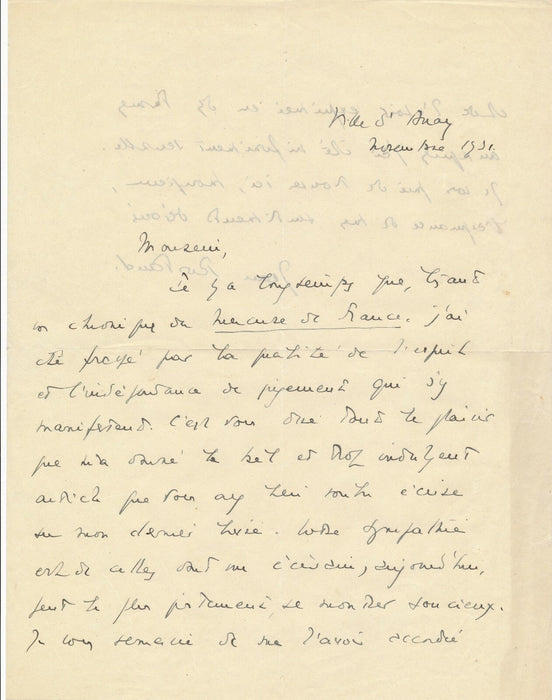 Ville d'Avray
Novembre 1931.
Monsieur,
Il y a longtemps que, lisant
vos chroniques du Mercure de France, j'ai
été frappé par la qualité de l'esprit
et l'indépendance de jugement qui s'y
manifestent. C'est vous dire tout le plaisir
que m'a donné le bel et trop indulgent
article que vous avez bien voulu écrire
sur mon dernier livre. Votre sympathie
est de celles dont un écrivain, aujourd'hui,
peut le plus justement se montrer soucieux.
Je vous remercie de me l'avoir accordée